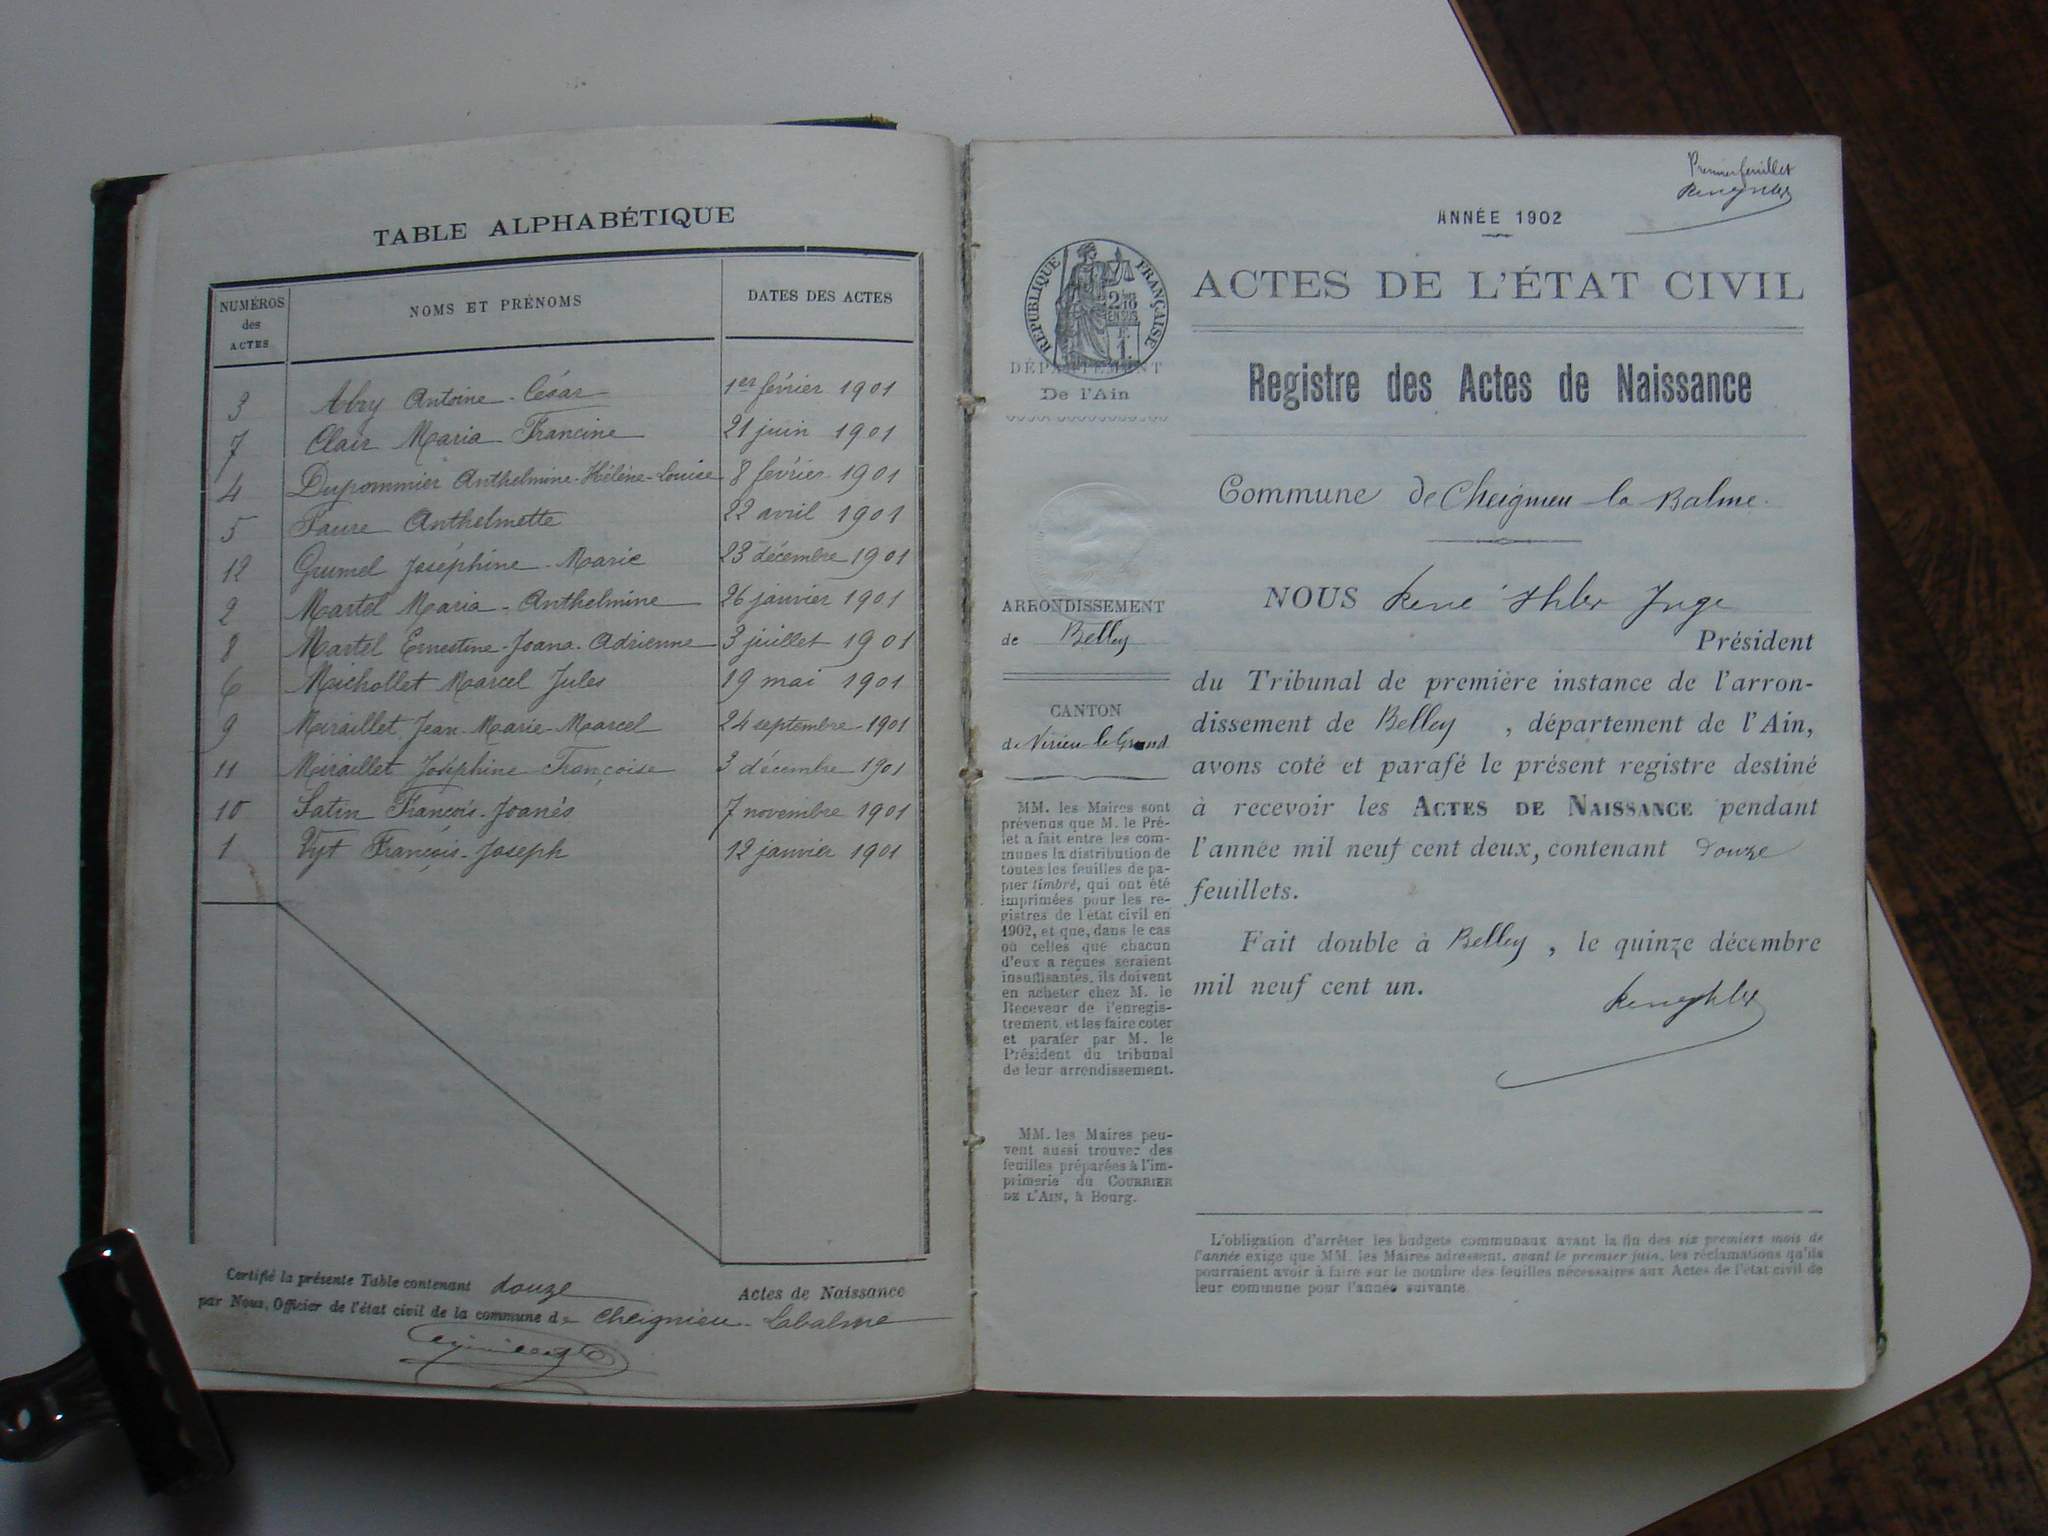 TABLE ALPHABÉTIQUE
NUMÉROS des ACTES NOMS ET PRÉNOMS DATES DES ACTES
3 Abry Antoine-César 1er février 1901
7 Clair Maria Francine 21 juin 1901
4 Dupommier Anthelmine-Hélène-Louise 8 février 1901
5 Faure Anthelmette 22 avril 1901
12 Grumel Joséphine-Marie 23 décembre 1901
2 Martel Maria-Anthelmine 26 janvier 1901
8 Martel Ernestine-Joana-Adrienne 3 juillet 1901
6 Michollet Marcel Jules 19 mai 1901
9 Miraillet Jean-Marie-Marcel 24 septembre 1901
11 Miraillet Joséphine Françoise 3 décembre 1901
10 Satin François-Joanés 7 novembre 1901
1 Vyt François-Joseph 12 janvier 1901
Certifié la présente Table contenant douze Actes de Naissance
par Nous, Officier de l'état civil de la commune de Cheignieu-Labalme
Premier feuillet
ANNÉE 1902
RÉPUBLIQUE FRANÇAISE
ACTES DE L'ÉTAT CIVIL
DÉPARTEMENT
De l'Ain
Registre des Actes de Naissance
Commune de Cheignieu-la Balme.
ARRONDISSEMENT
de Belley
CANTON
de Virieu-le-Grand
MM. les Maires sont
prévenus que M. le Pré-
fet a fait entre les com-
munes la distribution de
toutes les feuilles de pa-
pier timbré, qui ont été
imprimées pour les re-
gistres de l'état civil en
1902, et que, dans le cas
où celles que chacun
d'eux a reçues seraient
insuffisantes, ils doivent
en acheter chez M. le
Receveur de l'enregis-
trement, et les faire coter
et parafer par M. le
Président du tribunal
de leur arrondissement.
MM. les Maires peu-
vent aussi trouver des
feuilles préparées à l'im-
primerie du COURRIER
DE L'AIN, à Bourg.
NOUS René Juge
Président
du Tribunal de première instance de l'arron-
dissement de Belley, département de l'Ain,
avons coté et parafé le présent registre destiné
à recevoir les ACTES DE NAISSANCE pendant
l'année mil neuf cent deux, contenant douze
feuillets.
Fait double à Belley, le quinze décembre
mil neuf cent un.
L'obligation d'arrêter les budgets communaux avant la fin des six premiers mois de
l'année exige que MM. les Maires adressent, avant le premier juin, les réclamations qu'ils
pourraient avoir à faire sur le nombre des feuilles nécessaires aux Actes de l'état civil de
leur commune pour l'année suivante.